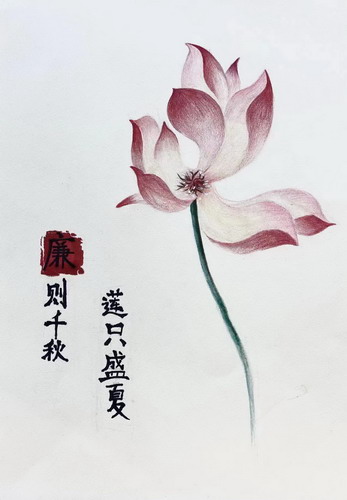 莲只盛夏
廉则千秋